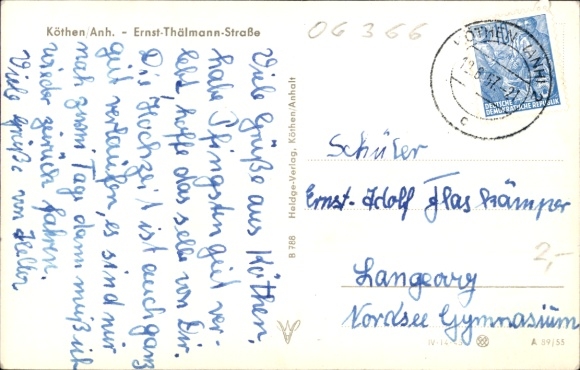 Köthen/Anh. - Ernst-Thälmann-Straße
06366
Viele Grüße aus Köthen,
habe Pfingsten gut ver-
lebt, hoffe das selbe von Dir.
Die Hochzeit ist auch ganz
gut verlaufen, es sind nur
noch zwei Tage dann muß ich
wieder zurück fahren.
Viele Grüße von
B 788 Heldge-Verlag, Köthen/Anhalt
DEUTSCHE
DEMOKRATISCHE REPUBLIK
Schüler
Ernst-Adolf Flaskämper
2,-
Langeoog
Nordsee Gymnasium
A 89/55